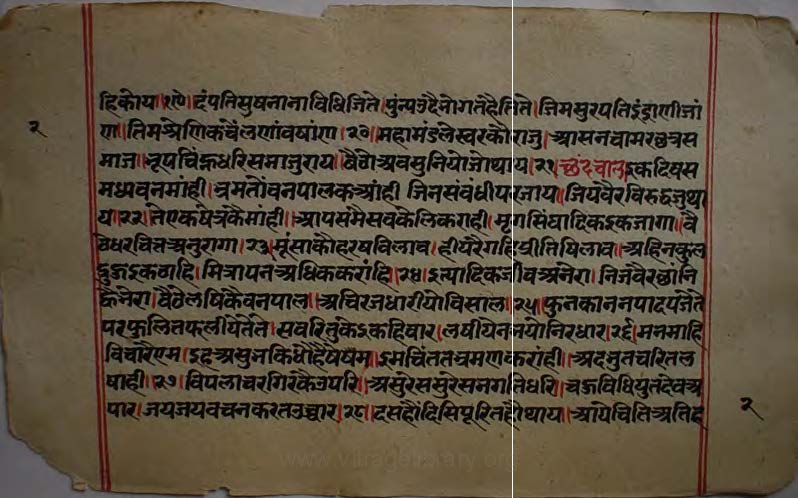 हिकोय ॥१९॥ दंपतिसुषनानाविधिजिते । पुंन्यउदैनोगतहैतिते । जिमसुरपतिइंद्राणीजां
ण । तिमश्रेणिकचेलणांवषांण । २० । महामंडलेस्वरकौराजु । आसनचामरछत्रस
माज । नृपचिंह्नधरिसमाजुराय । बैठोअवसुनियोजोथाय । २१ । छंदचालु । इकदिवस
मध्यवनमांही । भ्रमतोंवनपालकआंही जिनसंबंधीपरजाय । जियवैरविरुद्धजुथा
या । २२ । तेएकषेत्रकैमांही । आपसमैसबकेलिकराही । मृगसिंघादिकइकजागा । बै
ठेधरचितअनुरागा । २३ । मूंसाकौहरषविलाव । हीयरेगहिप्रीतिषिलाव । अहिनकुल
दुजइकठाहि । मित्रापनअधिककरांहि । २४ । इत्यादिकजीवअनेरा । निजवैरछांनि
कैनेरा । बैठेलषिकैवनपाल । अचिरजधारीयोविसाल । २५ । फुनकाननपादपजेते
परफुलितफलीयेतेते । सबरितुकेइकहिवार । लषीयेनजयोनिरधार । २६ । मनमाहि
विचारेएम । इहअसुनकिधौहैषेम । इमचिंततभ्रमणकरांही । अदभुतचरितल
षाही । २७ । विपलाचरगिरकैउपरि । असुरेससुरेसनगतिधरि । चऊविधियुतदेवअ
पार । जयजयवचनकरतउच्चार । २८ । दसहौंदिसिपूरितहौथाय । आयेचितिअतिह
२
२
www.vitragelibrary.org